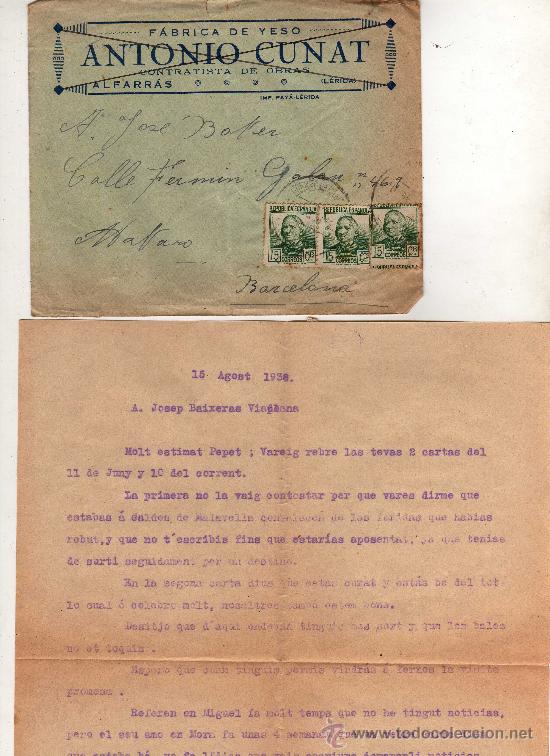 FÁBRICA DE YESO
ANTONIO CUNAT
CONTRATISTA DE OBRAS
ALFARRÁS (LÉRIDA)
IMP. PAYÁ-LÉRIDA
A. José
Calle Fermin Galan nº 469
Mataro
Barcelona
REPUBLICA ESPAÑOLA
15 CTS
CORREOS
REPUBLICA ESPAÑOLA
15 CTS
CORREOS
15 CTS
CORREOS
15 Agost 1938.
A. Josep Baixeras
Molt estimat Pepet ; Vareig rebre las tevas 2 cartas del
11 de Juny y 10 del corrent.
La primera no la vaig contestar per que vares dirme que
estabas á Caldes de Malavella de les feridas que habias
rebut, y que no t'escribis fins que estarias aposentat, ya que tenias
de sortí seguidament per un destino.
En la segona carta dius que estas curat y estás be del tot
lo cual ó celebro molt, nosaltres estem bons.
Desitjo que d'aquí endevan tinguis mes sort y que les bales
no et toquin .
Espero que cuan tinguis permis vindrás á fernos la visita
promesa .
Referen en Miguel fa molt temps que no he tingut noticias,
pero el seu amo en Mora fa unas 4 semanas que
todocoleccion.net